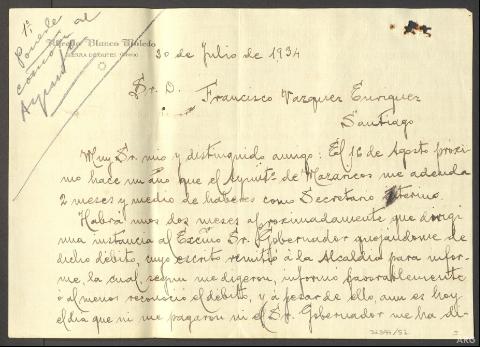 1º
Ponerle
comunic. al
Ayunt
Alfredo Blanco Tabeleo
SIERRA DE OUTES
30 de Julio de 1934
Sr. D. Francisco Vazquez Enriquez
Santiago
Muy Sr. mio y distinguido amigo: El 16 de Agosto próxi-
mo hace un año que el Ayuntº de Mazaricos me adeuda
2 meses y medio de haberes como Secretario interino.
Habrá mos dos meses aproximadamente que dirigi
una instancia al Excmo Sr. Gobernador quejándome de
dicho débito, cuyo escrito remitió á la Alcaldia para infor-
me, la cual segun me digeron, informó favorablemente
ó al menos reconoció el débito, y á pesar de ello, aun es hoy
el dia que ni me pagaron ni el Sr. Gobernador me ha di-
32344/52
ARG